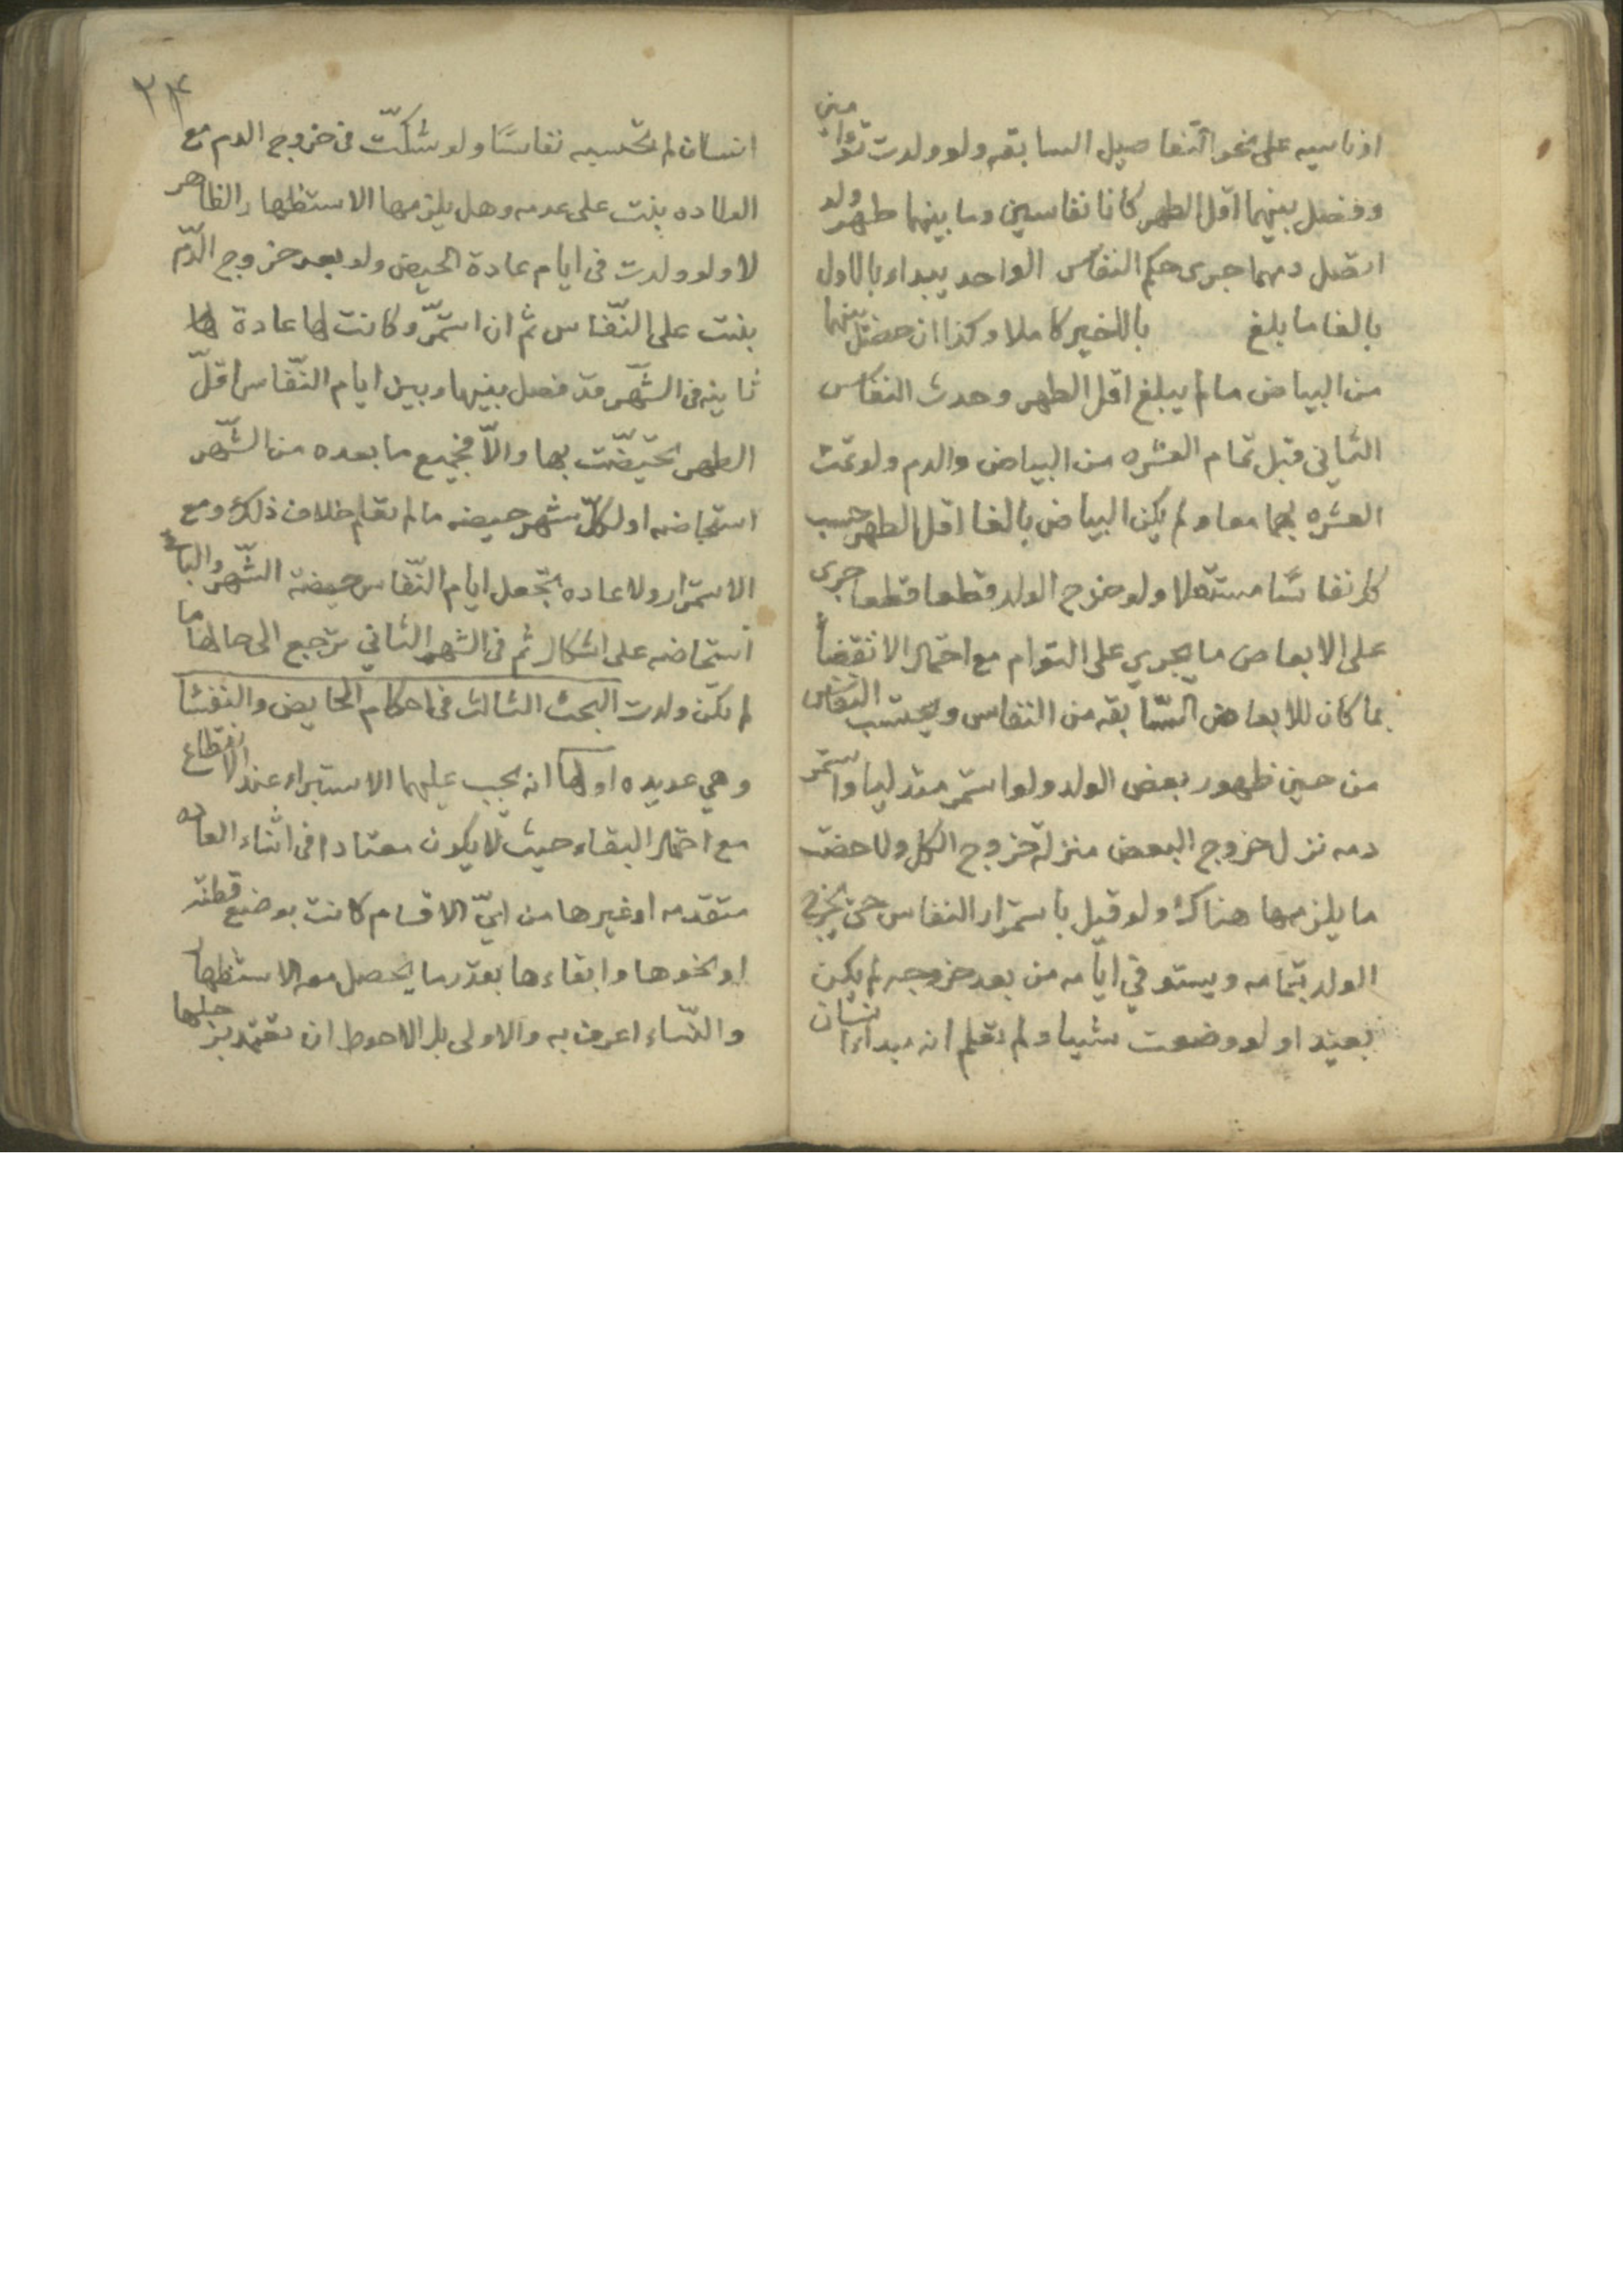 او ناسيه على نحو التفاصيل السابقه ولو ولدت توأمين
وفضل بينهما اقل الطهر كانا نفاسين وما بينهما طهر ولو
اتصل دمهما جرى حكم النفاس الواحد يبداء بالاول
بالغا ما بلغ بالاخير كاملا وكذا ان حصل بينهما
من البياض ما لم يبلغ اقل الطهر وحدث النفاس
الثاني قبل تمام العشره من البياض والدم ولو تمت
العشره بهما معا ولم يكن البياض بالغا اقل الطهر حسب
كل نفاسًا مستقلا ولو خرج الولد قطعا قطعا جرى
على الابعاض ما يجري على التوام مع احتمال الانقضاء
بما كان للابعاض السّابقه من النفاس ويحتسب النفاس
من حين ظهور بعض الولد ولو استمر متدليا واستمر
دمه نزل خروج البعض منزلة خروج الكل ولاحضت
ما يلزمها هناك ولو قيل باستمرار النفاس حتى يخرج
الولد بتمامه ويستوفي ايامه من بعد خروجه لم يكن
بعيدا ولو وضعت شيا ولم تعلم انه مبداء انسان
٢٤
انسان لم تحتسبه نفاسًا ولو شكّت في خروج الدم مع
الولاده بنت على عدمه وهل يلزمها الاستظهار الظاهر
لا ولو ولدت في ايام عادة الحيض ولو بعد خروج الدّم
بنت على النّفاس ثم ان استمرّ وكانت لها عادة لها
ثانيه في الشّهر قد فصل بينها وبين ايام النّفاس اقلّ
الطهر تحيّضت بها والّا فجميع ما بعده من الشّهر
استحاضه اول كلّ شهر حيضه ما لم تعلم خلاف ذلك ومع
الاستمرار ولا عاده تجعل ايام النّفاس حيضة الشّهر والباقي
استحاضه على اشكال ثم في الشهر الثاني ترجع الى حالها ما
لم تكن ولدت البحث الثالث في احكام الحايض والنفسا
وهي عديده اولها انه يجب عليهما الاستبراء عند الانقطاع
مع احتمال البقاء حيث لا يكون معتادا في اثناء العاده
متقدمه او غيرها من ايّ الاقسام كانت بوضع قطنة
او نحوها وابقاءها بقدر ما يحصل معه الاستظهار
والنّساء اعرف به والاولى بل الاحوط ان تعتمد برجلها